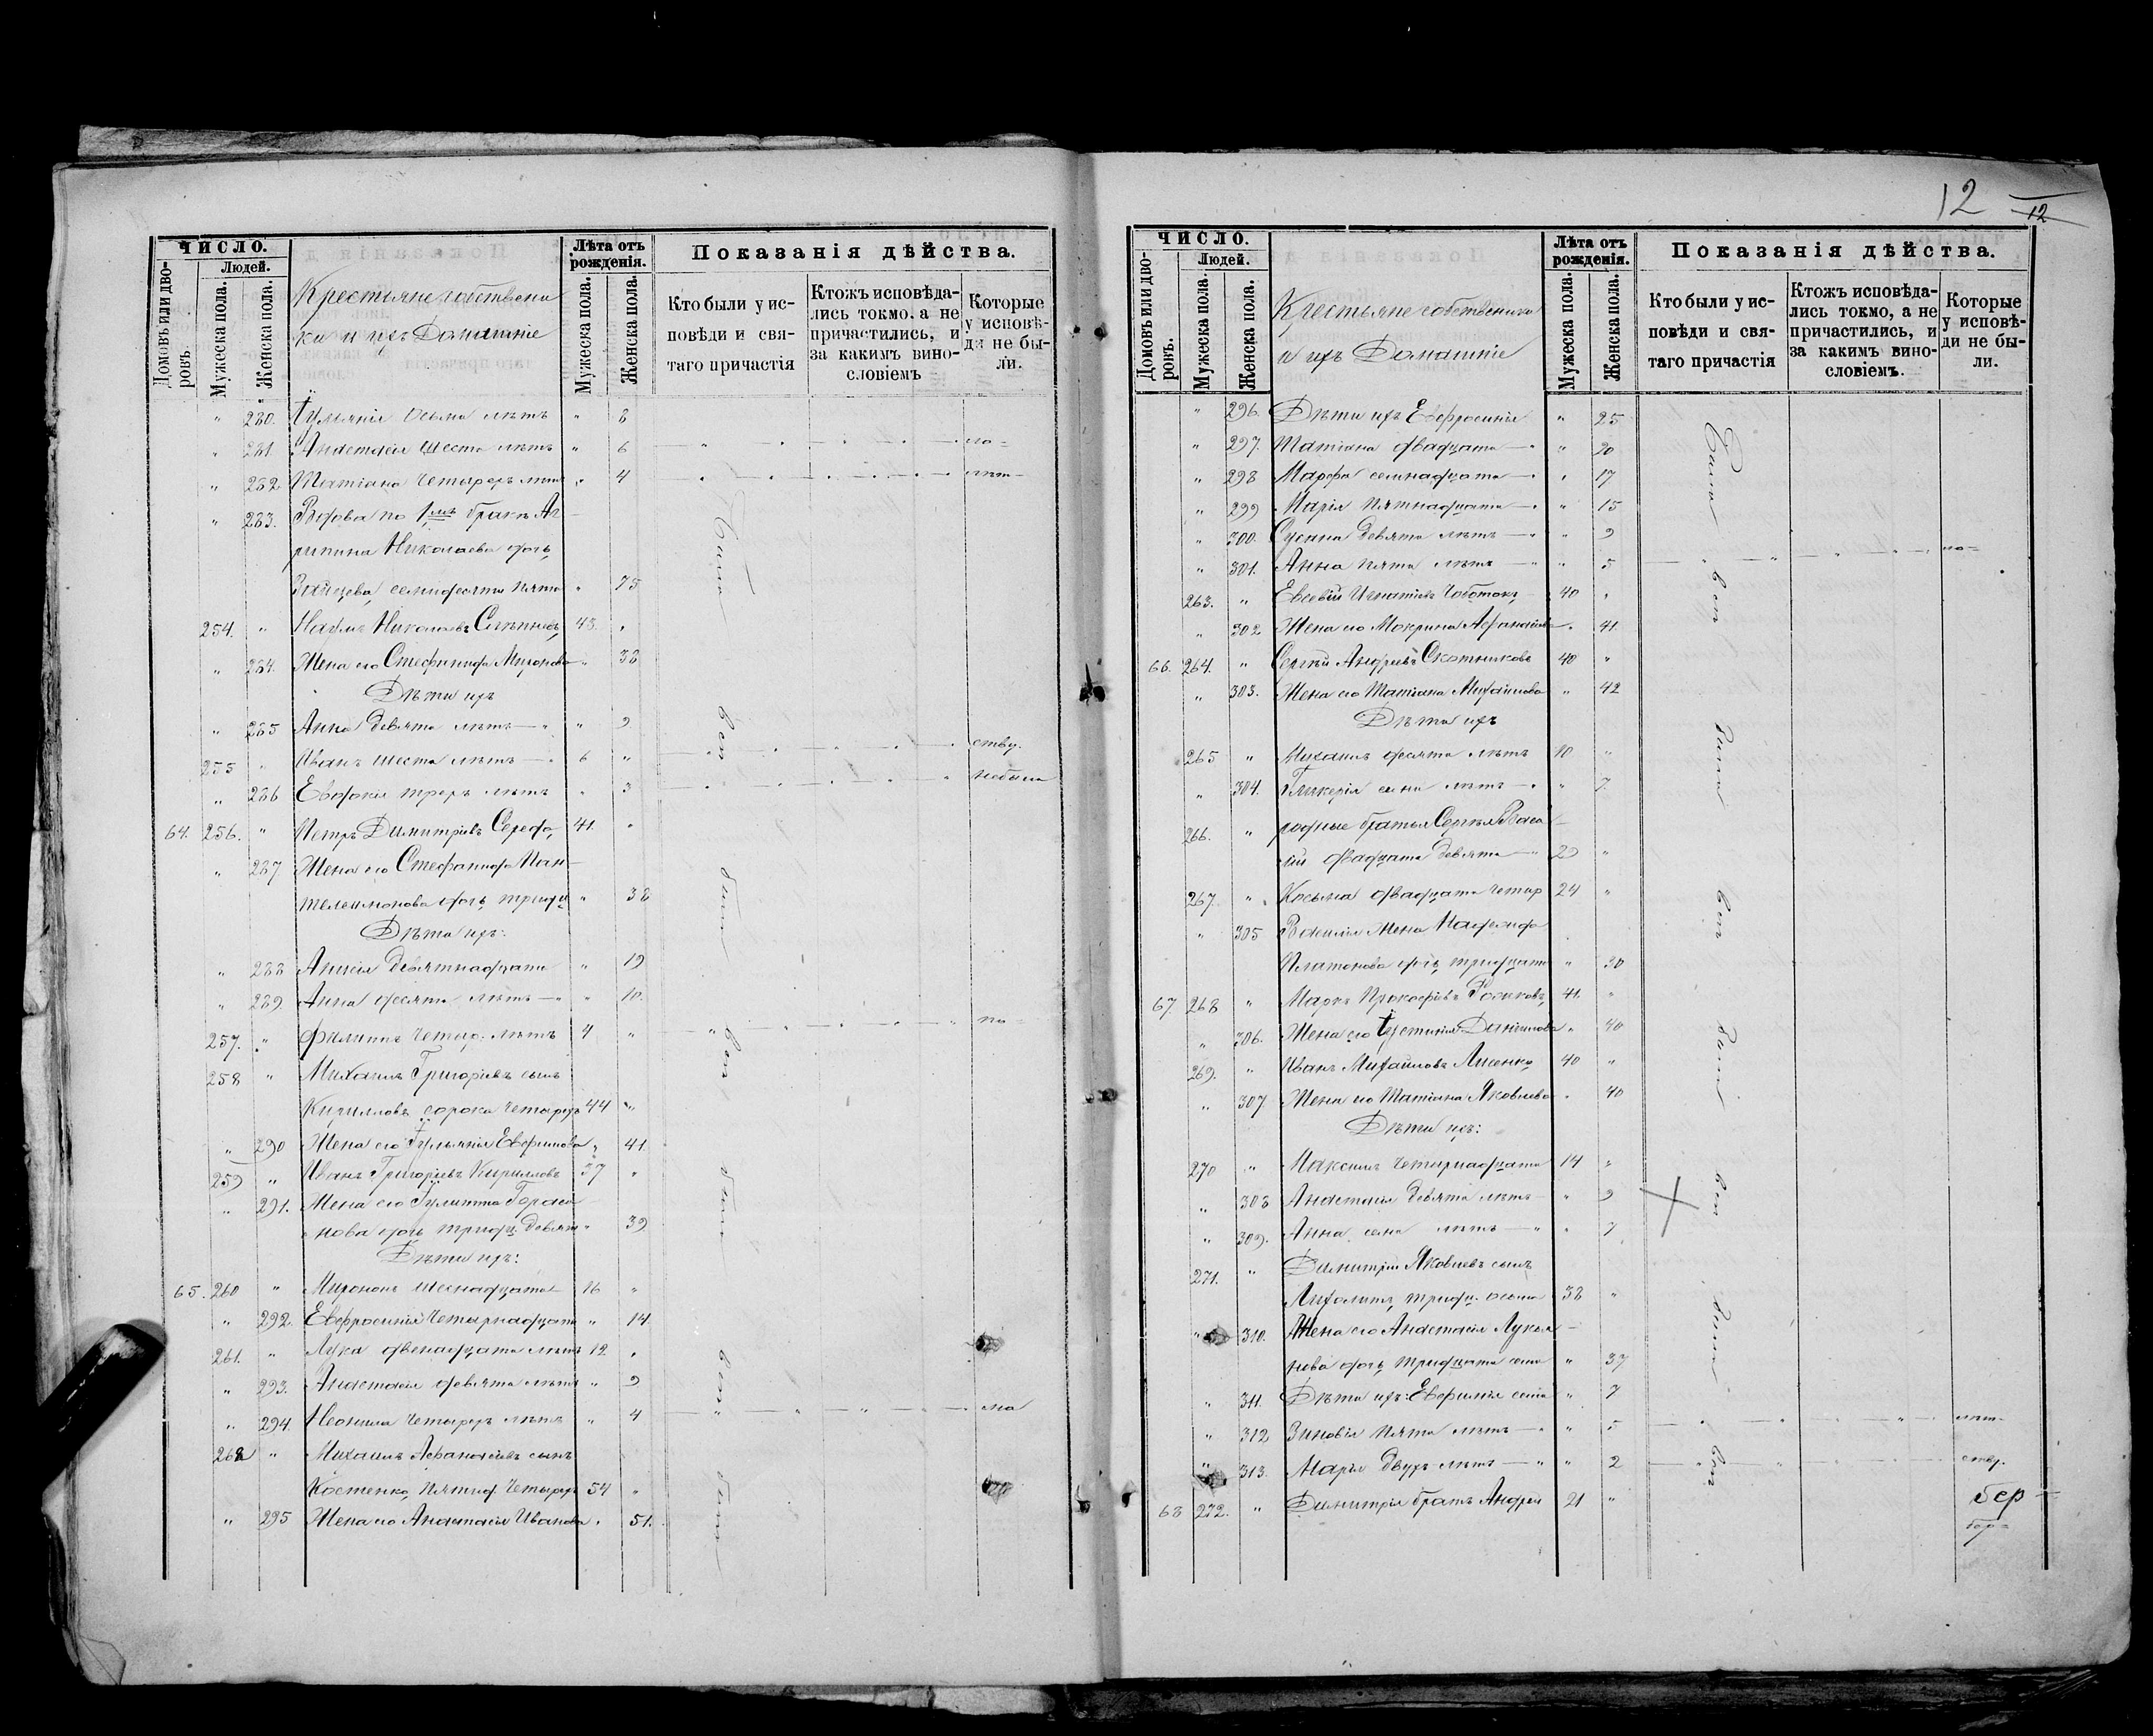 ЧИСЛО.
Домовъ или дворовъ.
Людей.
Мужеска пола.
Женска пола.
Крестьяне собствени
ки и ихъ Домашніе
Лѣта отъ рожденія.
Мужеска пола.
Женска пола.
Показанія дѣйства.
Кто были у исповѣди и святаго причастія
Ктожъ исповѣдались токмо, а не причастились, и за какимъ винословіемъ
Которые у исповѣди не были.
" 280. Іуліанія Осьми лѣтъ " 8
" 281. Анастасія Шести лѣтъ " 6
" 282 Татіана Четырехъ лѣтъ " 4
" 283. Вдова по 1мъ бракѣ Аг
рипина Николаева дочь
Зайцева, семидесяти пяти " 75
254. " Наумъ Николаевъ 43. "
" 284. Жена его Стефанида Миронова " 38
Дѣти ихъ
" 285 Анна Девяти лѣтъ — " " 9
255 " Иванъ шести лѣтъ — " 6 " ству.
" 286 Евдокія трехъ лѣтъ " 3 небыли
64. 256. " Петръ Димитріевъ Середа, 41. "
" 287 Жена его Стефанида Пан-
телеимонова дочь тридц " 38
Дѣти ихъ:
" 288 Анисія Девятнадцати " 19
" 289. Анна десяти лѣтъ — " " 10.
257. " Филиппъ Четыр: лѣтъ 4 "
258 " Михаилъ Григорьевъ сынъ
Кирилловъ сорока Четырехъ 44 "
" 290 Жена его Іуліанія Евфимова " 41.
259 " Иванъ Григорьевъ Кирилловъ 37 "
" 291. Жена его Іулитта Гераси
мова дочь тридц. Девяти " 39
Дѣти ихъ:
65. 260 " Миронъ шеснадцати 16 "
" 292. Евфросинія Четырнадцати " 14
261. " Лука двенадцати лѣтъ 12. "
" 293. Анастасія девяти лѣтъ " 9
" 294. Неонила Четырехъ лѣтъ " 4
262 " Михаилъ Афанасіевъ сынъ
Костенко, Пятид. Четырехъ 54 "
" 295 Жена его Анастасія Иванова " 51.
12
12
ЧИСЛО.
Домовъ или дворовъ.
Людей.
Мужеска пола.
Женска пола.
Крестьяне собственики
и ихъ Домашніе
Лѣта отъ рожденія.
Мужеска пола.
Женска пола.
Показанія дѣйства.
Кто были у исповѣди и святаго причастія
Ктожъ исповѣдались токмо, а не причастились, и за какимъ винословіемъ.
Которые у исповѣди не были.
" 296. Дѣти ихъ Евфросинія " 25
" 297. Татіана двадцати — " " 20
" 298 Марфа семнадцати — " " 17
" 299 Марія Пятнадцати — " " 15
" 300. Сусана Девяти лѣтъ — " " 9
" 301. Анна пяти лѣтъ — " " 5
263. " Евсевій Игнатіевъ Чоботокъ, 40 "
" 302 Жена его Мокрина Афанасіева " 41.
66. 264. " Сергѣй Андреевъ Скотниковъ 40 "
" 303. Жена его Татіана Михайлова " 42
Дѣти ихъ
265 " Михаилъ десяти лѣтъ 10 "
" 304. Гликерія семи лѣтъ — " " 7.
266. " родные братья Сергѣя Васи
лій двадцати Девяти — " 29 "
267. " Косьма двадцати четыр 24 "
" 305 Василія Жена Надежда
Платонова дочь тридцати " 30
67. 268 " Маркъ Прокофіевъ 41. "
" 306. Жена его Іустинія " 40
269. " Иванъ Михайловъ Лисенко, 40 "
" 307. Жена его Татіана Яковлева " 40
Дѣти ихъ:
270 " Максимъ Четырнадцати 14 "
" 308 Анастасія Девяти лѣтъ " 9
" 309. Анна семи лѣтъ — " " 7
271. " Димитрій Яковлевъ сынъ
тридц. осьми 38 "
" 310. Жена его Анастасія Лукья-
нова дочь тридцати семи " 37
" 311. Дѣти ихъ: Евфимія семи " 7
" 312 Зиновія пяти лѣтъ — " " 5
" 313. Марія двухъ лѣтъ — " " 2
68 272. " Димитрія братъ Андрей 21 "